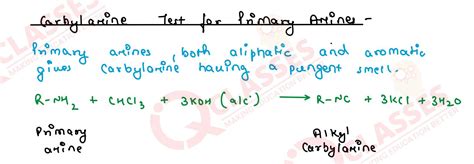 Carbylamine Test for Primary Amines -
Primary amines, both aliphatic and aromatic
gives Carbylamine having a pungent smell.
R-NH₂ + CHCl₃ + 3KOH (alc.) ⟶ R-NC + 3KCl + 3H₂O
Primary amine
Alkyl Carbylamine
CLASSES